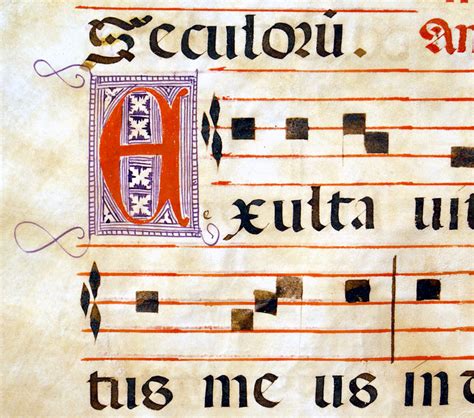 Seculorū. An
Exulta uit
tus me us in d